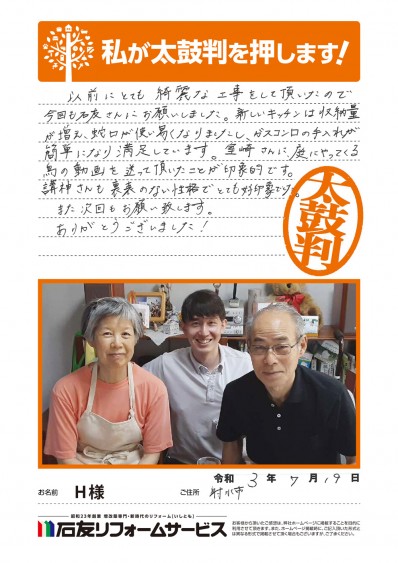 私が太鼓判を押します!
以前にとても綺麗な工事をして頂いたので
今回も石友さんにお願いしました。新しいキッチンは収納量
が増え、蛇口が使い易くなりましたし、ガスコンロの手入れが
簡単になり満足しています。宮崎さんに庭にやってくる
鳥の動画を送って頂いたことが印象的です。
講神さんも裏表のない性格でとても好印象です。
また次回もお願い致します。
ありがとうございました!
太鼓判
令和 3 年 7 月 19 日
お名前 H様 ご住所 射水市
石友リフォームサービス